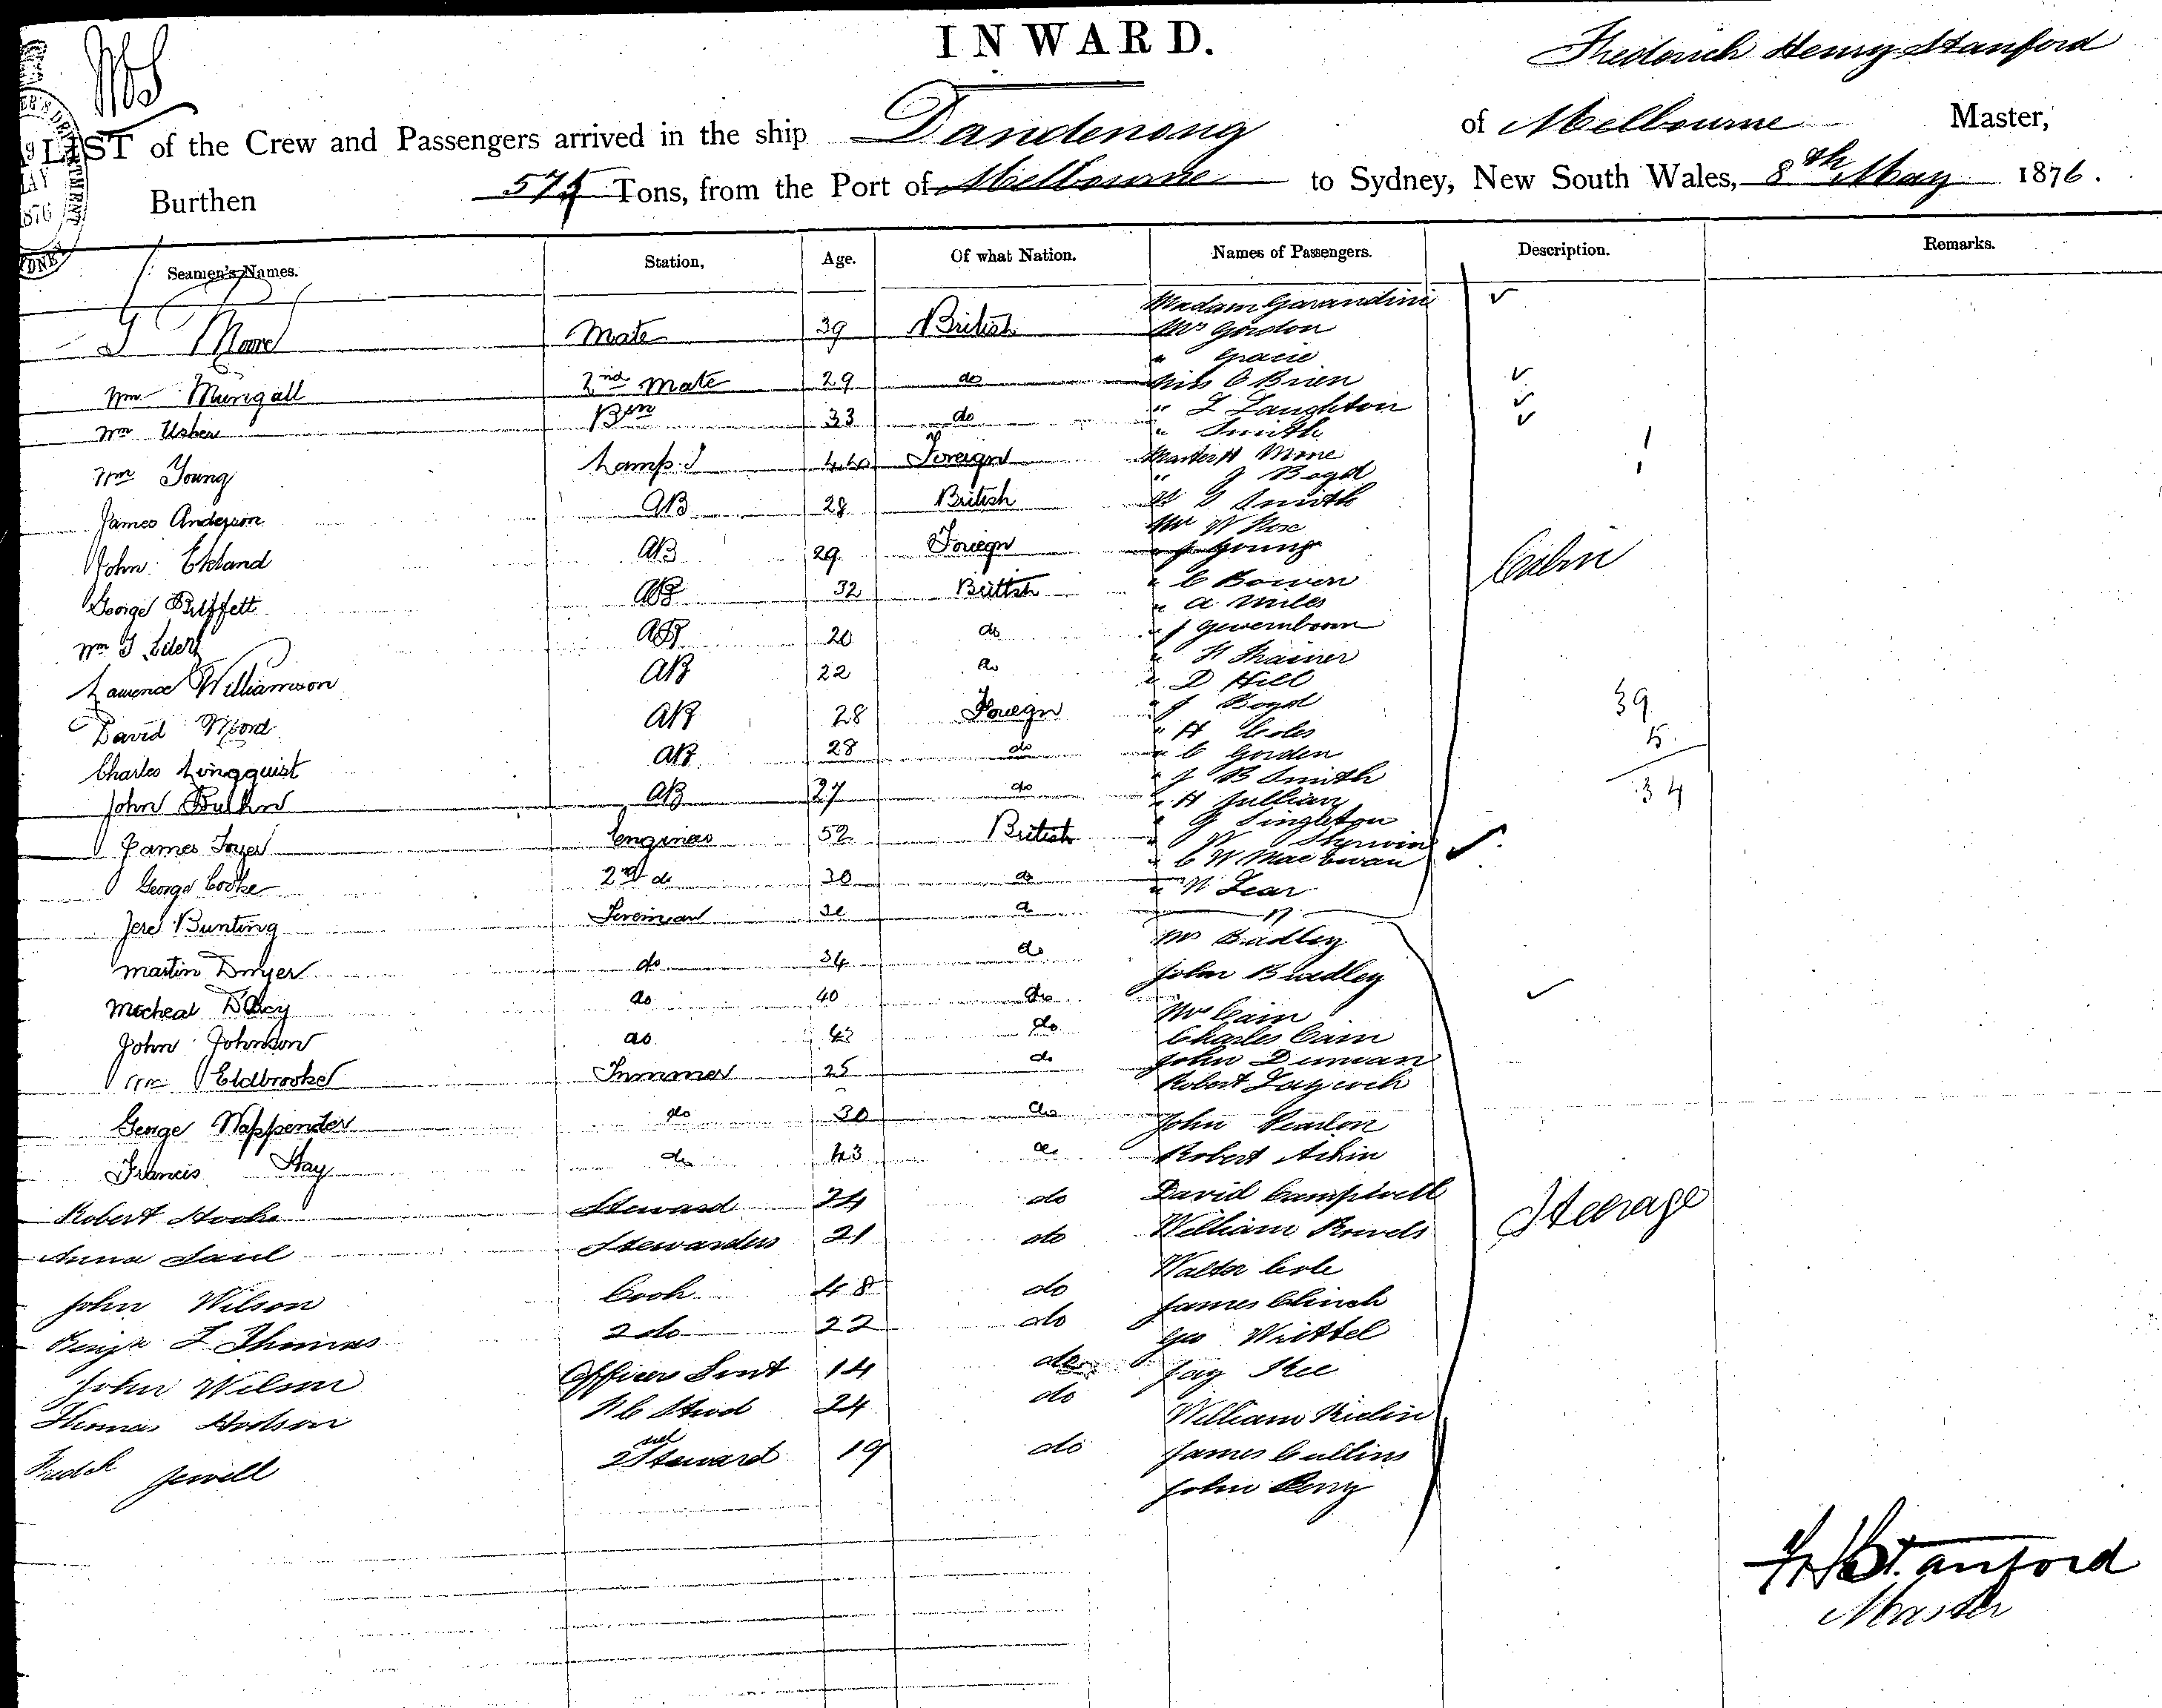 INWARD.
Frederick Henry Stanford
LIST of the Crew and Passengers arrived in the ship Dandenong of Melbourne Master,
Burthen 575 Tons, from the Port of Melbourne to Sydney, New South Wales, 8th May 1876.
Seamen's Names. Station, Age. Of what Nation. Names of Passengers. Description. Remarks.
Madam Garandini
Moore Mate 39 British Mrs Gordon
" Gracie
Wm Mungall 2nd Mate 29 do Miss O Brien
Wm Usher Bsn 33 do " L Laughton
" Smith
Wm Young Lamp T 44 Foreign Master H Mone
" J Boyd
James Anderson AB 28 British " Smith
Mr W Rose
John Ekland AB 29 Foriegn " J Young
George Buffett AB 32 British " C Bowen Cabin
" A Miles
Wm J AB 20 do " J
Laurence Williamson AB 22 do " H Thainer
" D Hill
David AB 28 Foriegn " J Boyd 39
Charles Lingquist AB 28 do " H Coles 5
" C Gorden
John AB 27 do " J B Smith 34
" H Jullian
James Engineer 52 British " G Singleton
" W Sherwin
George Cooke 2nd do 30 do " C W MacEwan
" N Lear
Jere Bunting Fireman 30 do 17
Martin Dwyer do 34 do Mrs Badley
Micheal D'Arcy do 40 do John Bradley
John Johnson do 43 do Mrs Cain
Charles Cain
Wm Eldbrooke Trimmer 25 do John Duncan
Robert Laycock
George Wappender do 30 do John
Francis Hay do 43 do Robert Aikin
Robert Steward 24 do David Campbell Steerage
Anna Saul Stewardess 21 do William
Walter Cole
John Wilson Cook 48 do James Clinch
Benjn L Thomas 2 do 22 do Geo Wrottel
John Wilson Officers Svnt 14 do Jay Kee
Thomas Hodson F C Stwd 24 do William
Fredck Jewell 2nd Steward 19 do James Cullins
John Perry
F H Stanford
Master